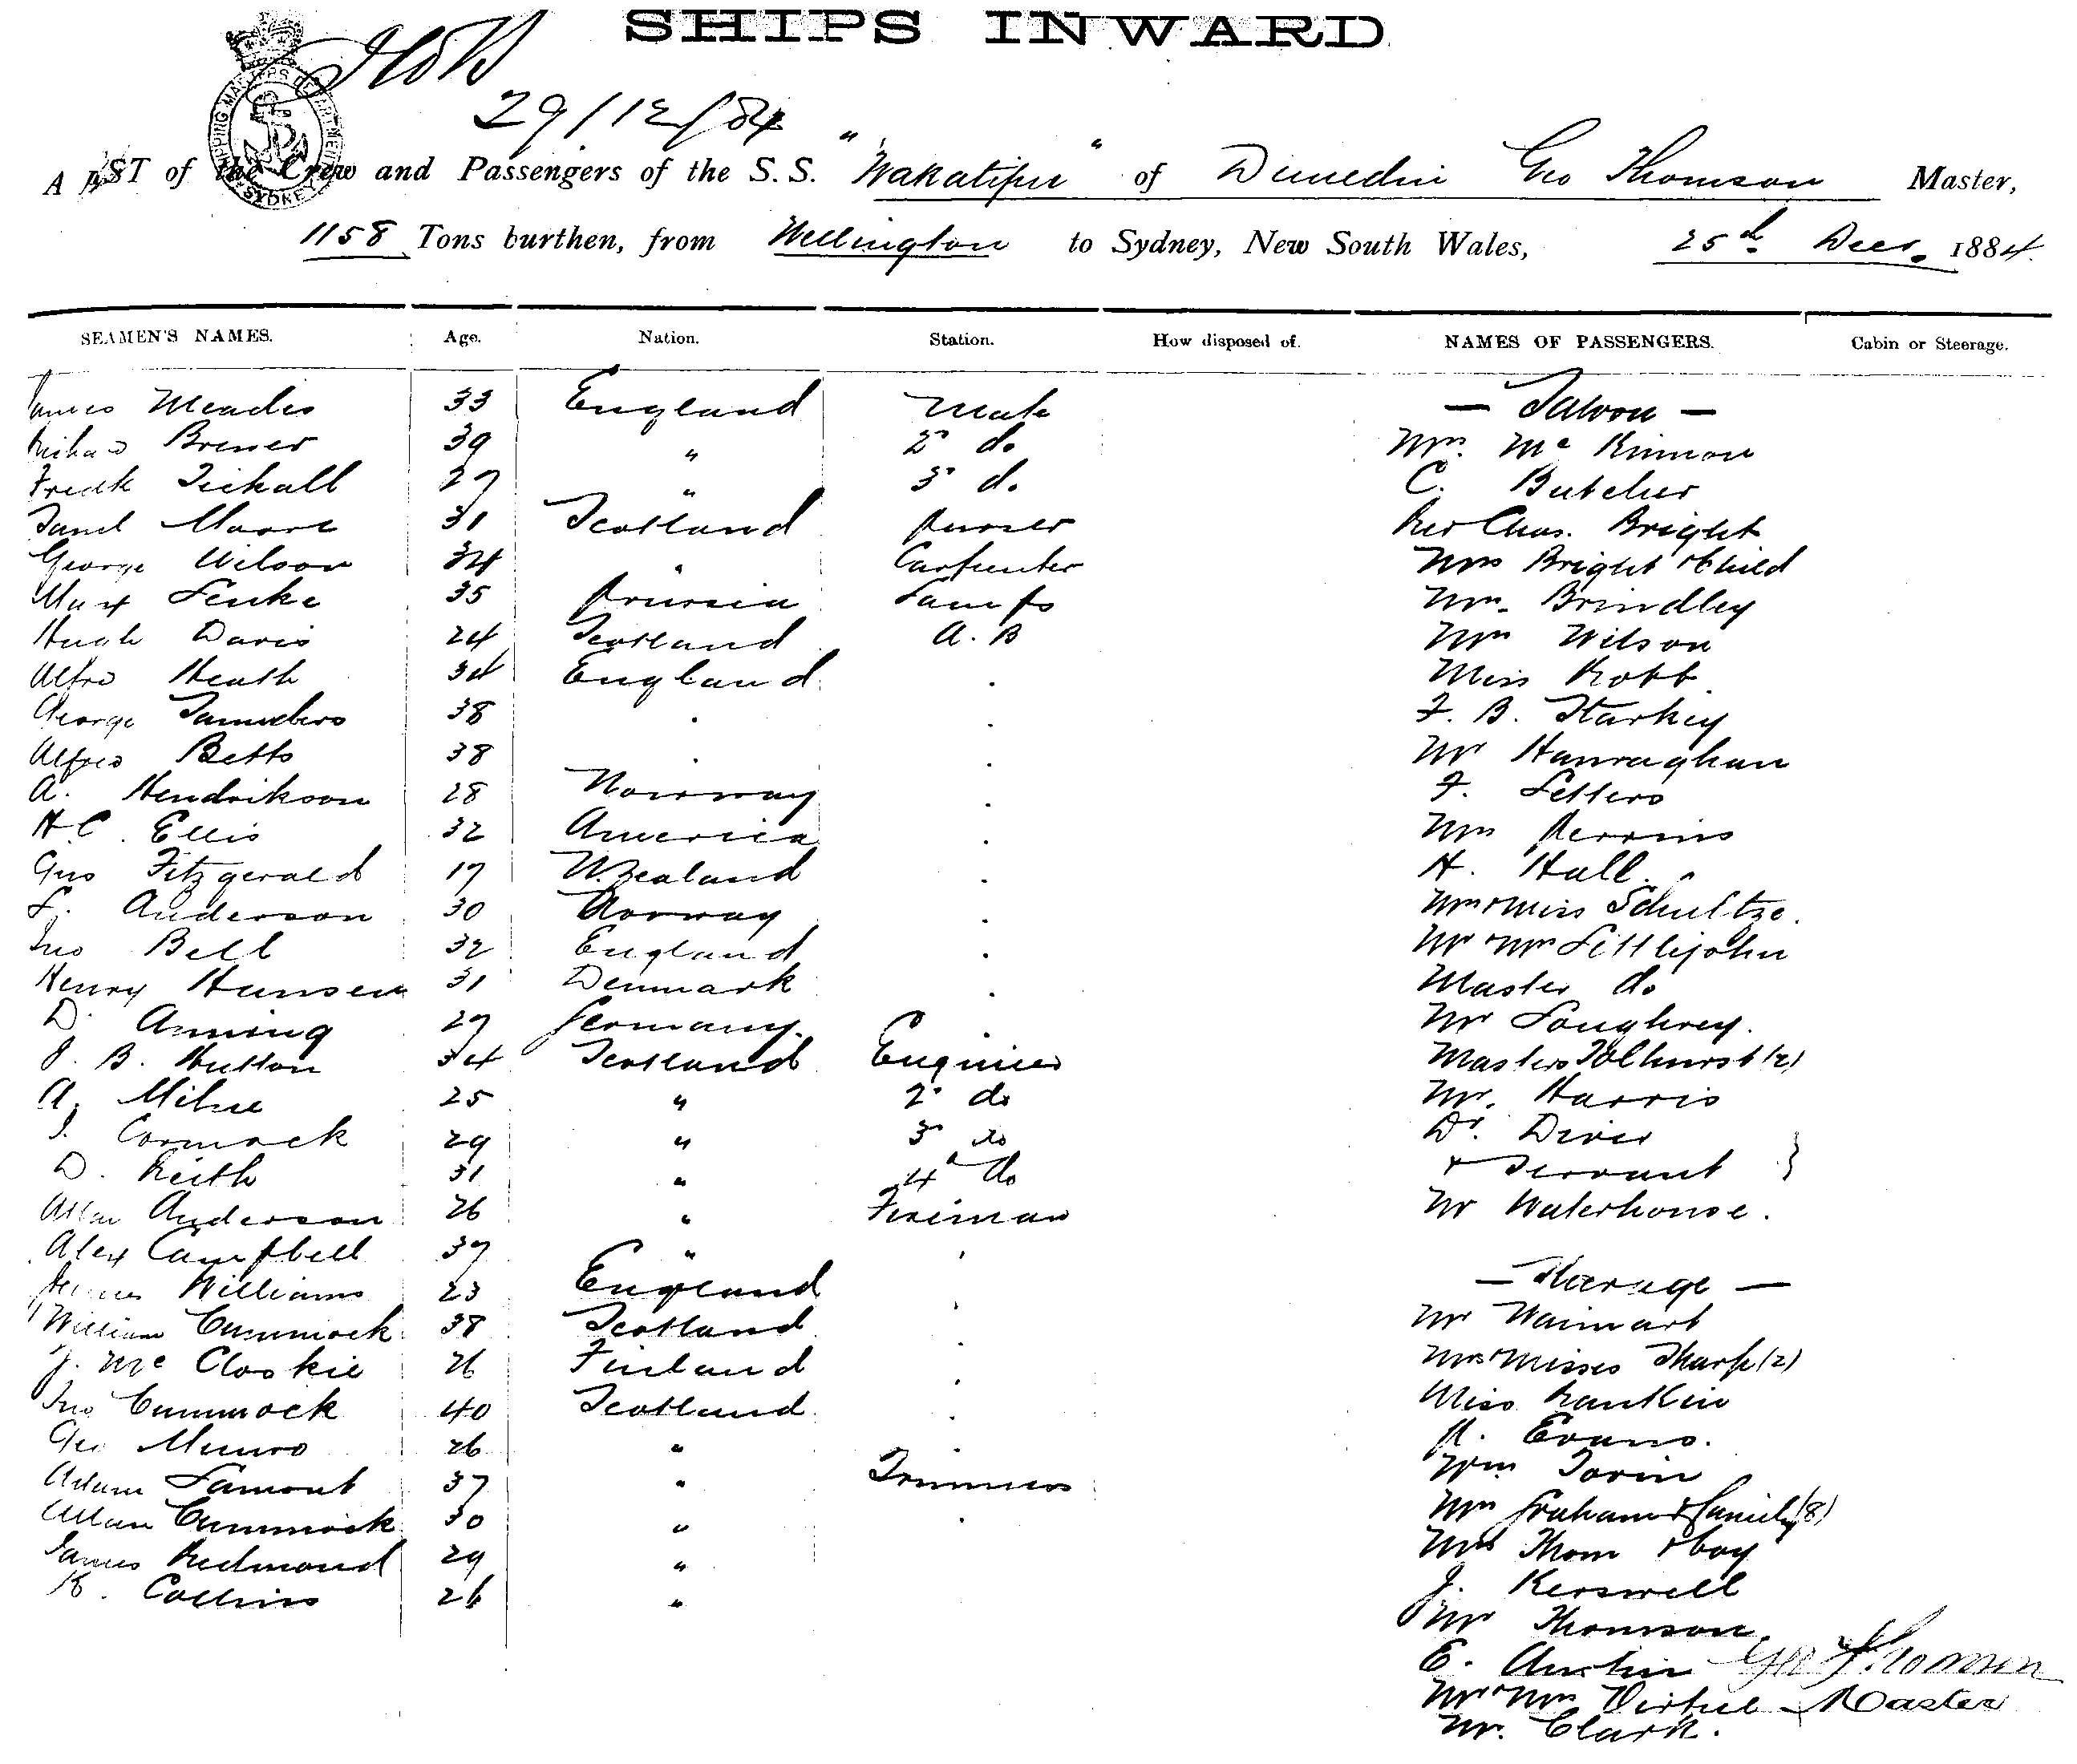 SHIPS INWARD
29/12/84
SHIPPING MASTERS DEPARTMENT SYDNEY
A LIST of the Crew and Passengers of the S.S. "Wakatipu" of Dunedin Geo Thomson Master,
1158 Tons burthen, from Wellington to Sydney, New South Wales, 25th Decr. 1884
SEAMEN'S NAMES. Age. Nation. Station. How disposed of. NAMES OF PASSENGERS. Cabin or Steerage.
James Meades 33 England Mate — Saloon —
Richard Brewer 39 " 2d do Mrs. Mc Kinnon
Fredk Tickall 27 " 3d do C. Butcher
Saml Moore 31 Scotland Purser Rev Chas. Bright
George Wilson 34 " Carpenter Mrs Bright & Child
Max Lenke 35 Prussia Lamps Mrs. Brindley
Hugh Davis 24 Scotland A.B Mrs Wilson
Alfred Heath 34 England . Miss Robb
George Saunders 38 . . F. B. Starkey
Alfred Betts 38 . . Mr Hanraghan
A. Hendrikson 28 Norway . F. Fetters
H.C. Ellis 32 America . Mrs Perrins
Gus Fitzgerald 17 N.Zealand . H. Hall.
L. Anderson 30 Norway . Mrs & Miss Schultze.
Jno Bell 32 England . Mr & Mrs Littlejohn
Henry Hansen 31 Denmark . Master do
D. Anning 27 Germany . Mr Loughrey.
J. B. Hutton 34 Scotland Engineer Masters Tolhurst (2)
A. Milne 25 " 2d do Mr. Harris
J. Cormack 29 " 3d do Dr. Diver
D. Keith 31 " 4th do & Servant }
Allan Anderson 26 " Fireman Mr Waterhouse.
Alex Campbell 37 " .
James Williams 23 England . — Steerage —
William Cummock 38 Scotland . Mr Wainart
J. Mc Closkie 26 Finland . Mrs & Misses Sharp (2)
Jno Cummock 40 Scotland . Miss Rankin
Geo Munro 26 " . R. Evans.
Adam Lamont 37 " Trimmers Wm Tovin
Allan Cummock 30 " . Mrs Graham & family (8)
James Redmond 29 " Mrs Thom & boy
K. Collins 26 " J. Kerswell
Mr Thomson
E. Austin Geo Thomson
Mr & Mrs Virtue Master
Mr. Clark.